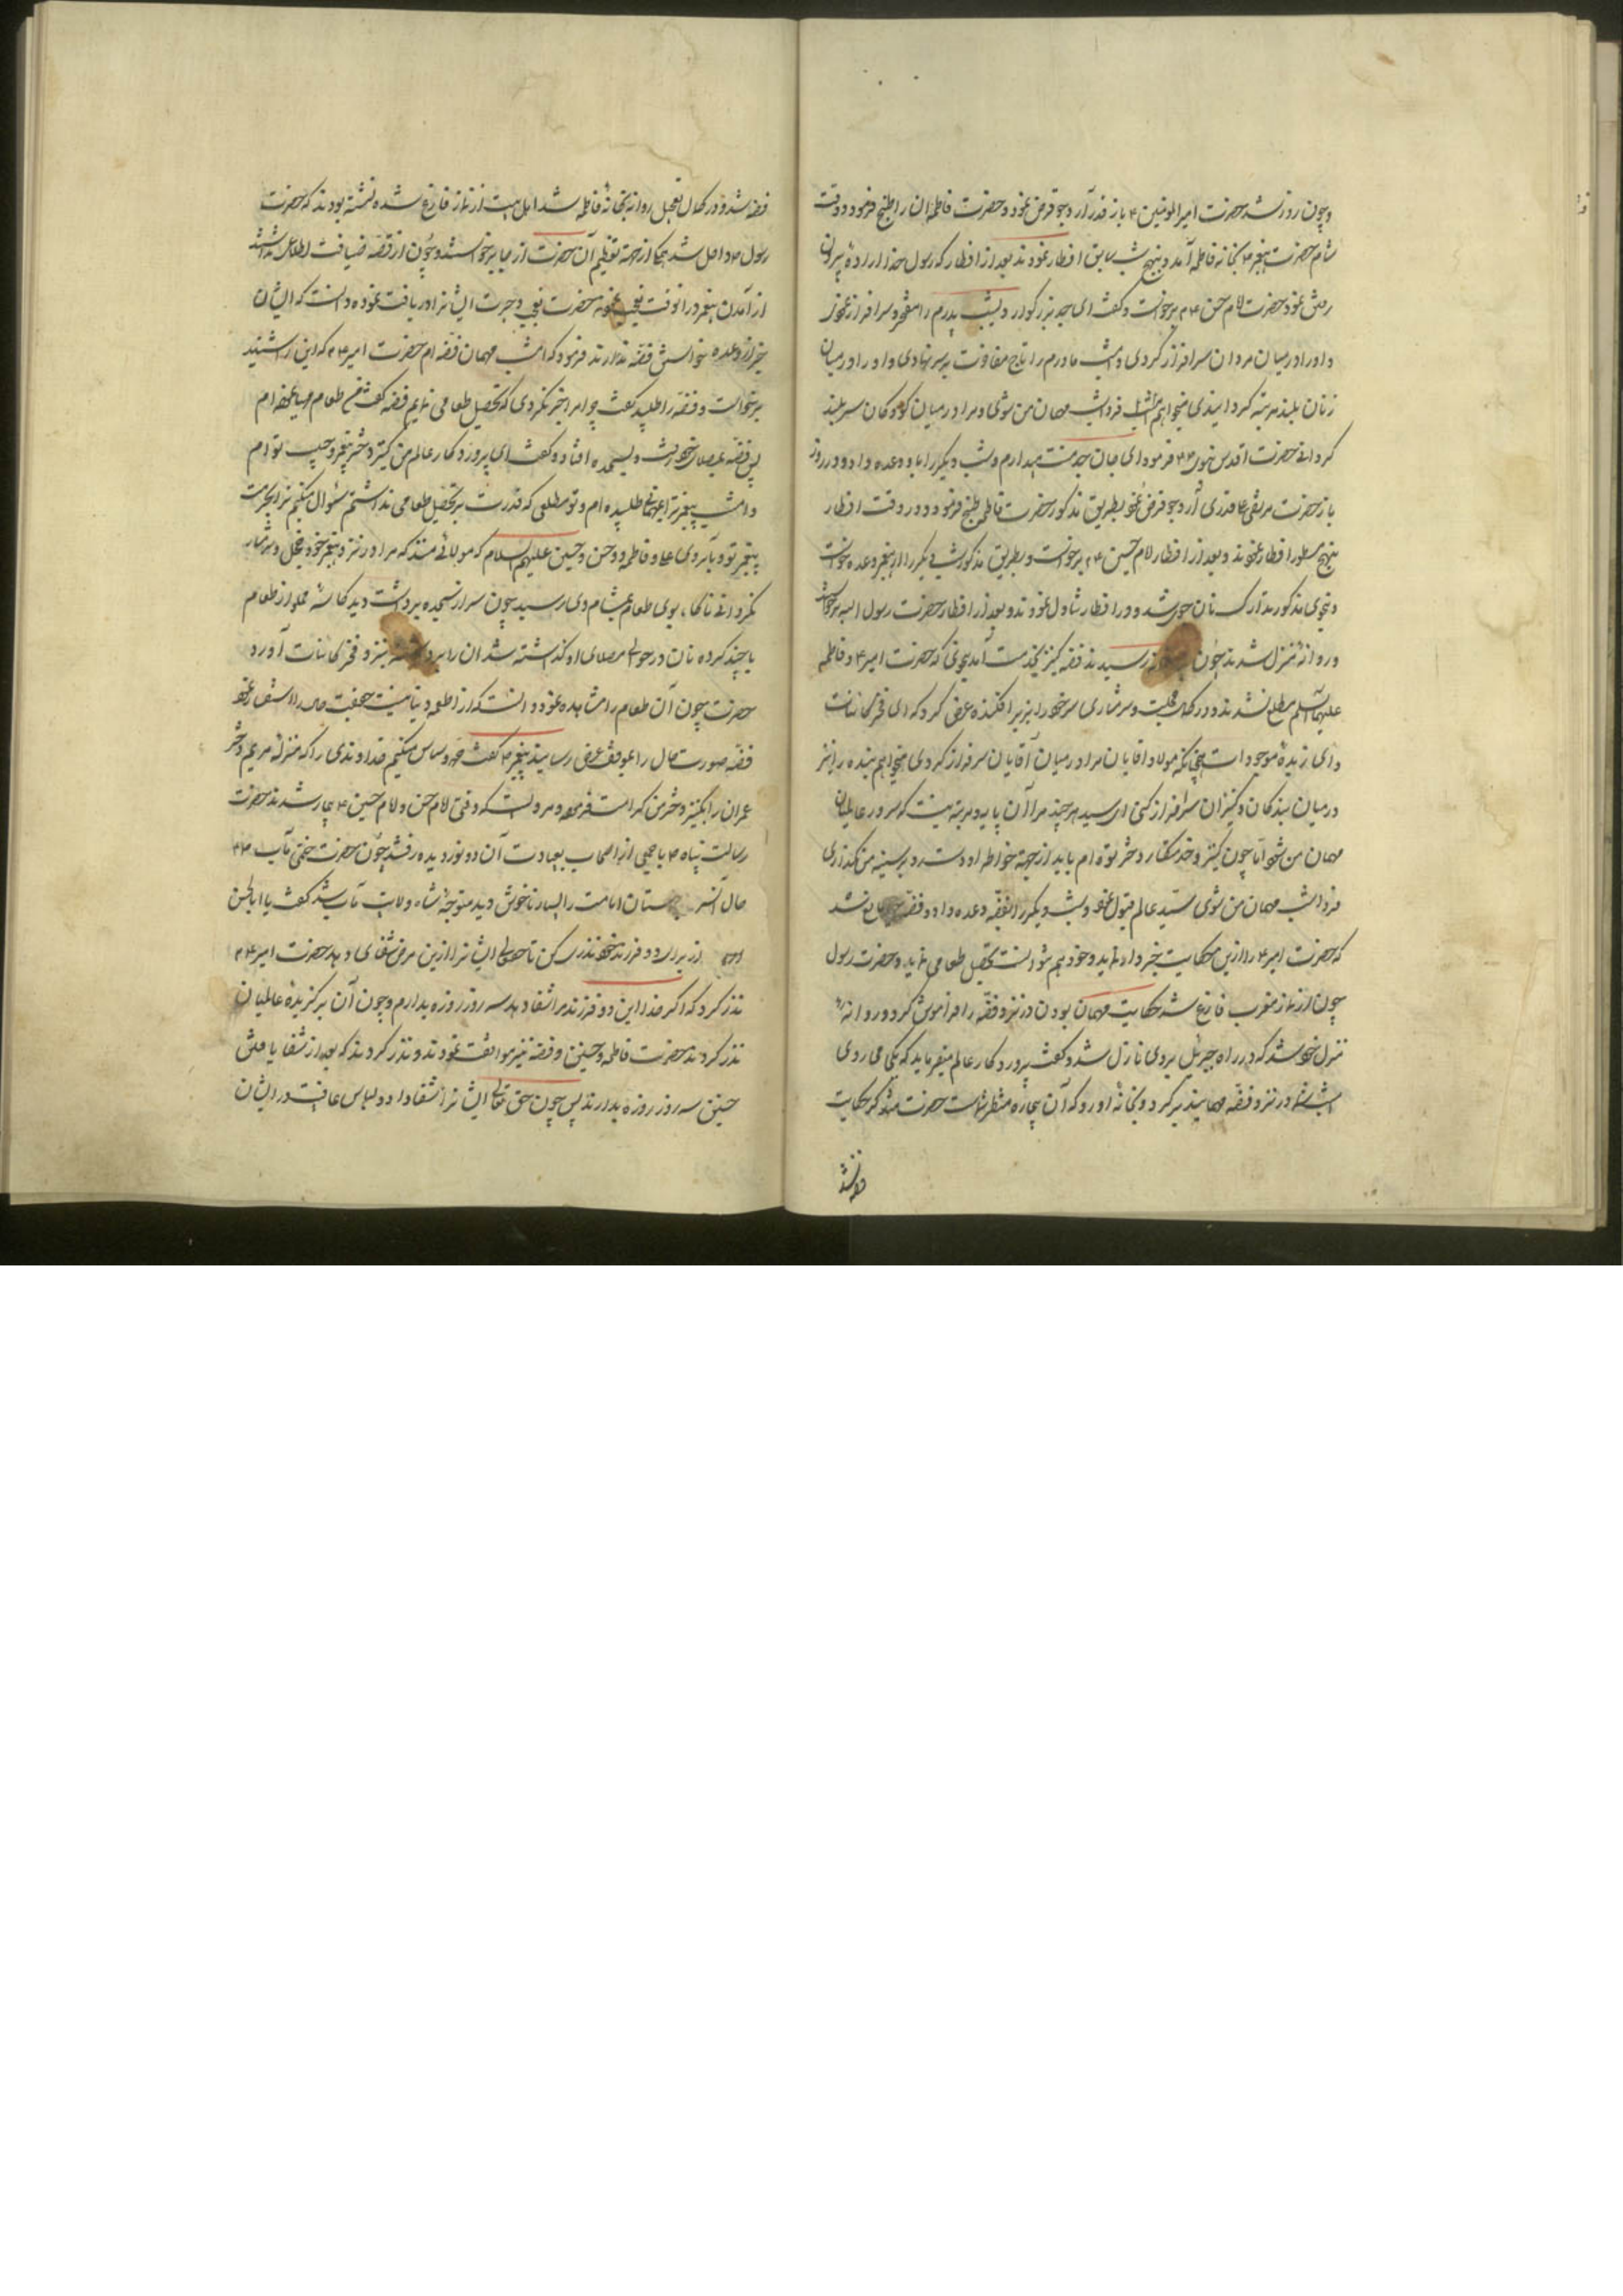 وچون روز شد حضرت امیرالمومنین ۴ باز قدر آرد جو قرض نمود و حضرت فاطمه ان را طبخ فرمود و وقت
شام حضرت پیغمبر ۴ بخانه فاطمه آمد و بنهج شب سابق افطار نمودند بعد از افطار که رسول خدا اراده بیرون
رفتن نمود حضرت امام حسن ۴م برخواست و گفت ای جد بزرکوار دیشب پدرم را مفتخر و سرافراز نمودی
و او را در میان مردان سرافراز کردی و امشب مادرم را تاج مفاخرت بر سر نهادی و او را در میان
زنان بلند مرتبه کردانیدی میخواهم فردا شب مهمان من شوی و مرا در میان کودکان سربلند
کردانی حضرت اقدس نبوی فرمود ای جان جد منت میدارم و شب دیکر را باو وعده داد و در روز
باز حضرت مرتضی علی قدری آرد جو قرض نمود بطریق مذکور حضرت فاطمه طبخ فرمود و در وقت افطار
بنهج مسطور افطار نمودند و بعد از افطار امام حسین ۴م برخواست و بطریق مذکور شب دیکر را از پیغمبر وعده خواست
و بنحوی مذکور تدارک نان جوی شد و در افطار تناول نمودند و بعد از افطار حضرت رسول ۴ برخواست
و روانه منزل شدند چون رسیدند فضه کنیز بخدمت آمد بنحوی که حضرت امیر ۴ و فاطمه
علیهما السلم مطلع نشدند و در کمال خجلت و سرمساری سر خود را بزیر افکنده عرض کرد که ای فخر کاینات
و ای زبده موجودات چنانکه مولا و آقایان مرا در میان آقایان سرفراز کردی میخواهم بنده را نیز
در میان بندکان و کنیزان سرافراز کنی ای سید هر چند مرا آن پایه و مرتبه نیست که سرور عالمیان
مهمان من شود اما چون کنیز و خدمتکار دختر توام باید از جهة خواطر او دست رد بر سینه من نکذاری
فردا شب مهمان من شوی سید عالم قبول نمود و شب دیکر را بفضه وعده داد و فضه مانع شد
که حضرت امیر ۴ را ازین حکایت خبر دار نماید و خود هم نتوانست تحصیل طعامی نماید و حضرت رسول
چون از نماز مغرب فارغ شد حکایت مهمان بودن در نزد فضه را فراموش کرد و روانه
منزل خود شد که در راه جبرئیل بر وی نازل شد و گفت پرورد کار عالم میفرماید که بکجا می روی
امشب شما در نزد فضه مهمانید برکرد و بخانه او رو که آن بیچاره منتظر شماست حضرت متذکر حکایت
فضه شد
فضه شد و در کمال تعجیل روانه بخانه فاطمه شد اهل بیت از نماز فارغ شده نشسته بودند که حضرت
رسول ۴ داخل شد همکی از جهة تعظیم آن حضرت از جا برخواستند و چون از قصه ضیافت اطلاع نداشتند
از آمدن پیغمبر در انوقت تعجب نمودند حضرت تعجب و حیرت ایشان را دریافت نموده دانست که ایشان
خبر از وعده خواستن فضه ندارند فرمود که امشب مهمان فضه ام حضرت امیر ۴م که این را شنید
برخواست و فضه را طلبید گفت چرا مرا خبر نکردی که تحصیل طعامی نمایم فضه گفت من طعام مهیا نموده ام
پس فضه بمصلای خود رفت و بسجده افتاد و گفت ای پرورد کار عالم من کنیز دختر پیغمبر و حبیب تو ام
و امشب پیغمبر ترا بمهمانی طلبیده ام و تو مطلعی که قدرت بر تحصیل طعامی نداشتم سئوال میکنم ترا بحرمت
پیغمبر تو و بآبروی علی و فاطمه و حسن و حسین علیهم السلام که مولای منند که مرا در نزد پیغمبر خود خجل و شرمسار
نکردانی ناکاه بوی طعام بمشام وی رسید چون سر از سجده برداشت دید کاسه مملو از طعام
با چند کرده نان در حوالی مصلای او کذاشته شد ان را برداشته بنزد فخر کاینات آورد
حضرت چون آن طعام را مشاهده نمود دانست که از اطعمه دنیا نیست حقیقت حال را استفسار نمود
فضه صورت حال را بموقف عرض رسانید پیغمبر ۴ گفت حمد و سپاس میکنم خداوندی را که منزله مریم دختر
عمران را بکنیز دختر من کرامت فرمود و مرویست که وقتی امام حسن و امام حسین ۴ بیمار شدند حضرت
رسالت پناه ۴ با جمعی از اصحاب بعیادت آن دو نور دیده رفتند چون حضرت ختمی مآب ۴م
حال آن سر بوستان امامت را بسیار ناخوش دید متوجه شاه ولایت مآب شد گفت یا ابا الحسن
از برای دو فرزند خود نذری کن تا حق تعالی ایشان را ازین مرض شفای دهد حضرت امیر ۴م
نذر کرد که اکر خدا این دو فرزند مرا شفا دهد سه روز روزه بدارم و چون آن برکزیده عالمیان
نذر کردند حضرت فاطمه و حسنین و فضه نیز موافقت نمودند و نذر کردند که بعد از شفا یافتن
حسنین سه روز روزه بدارند پس چون حق تعالی ایشان را شفا داد و لباس عافیت در ایشان